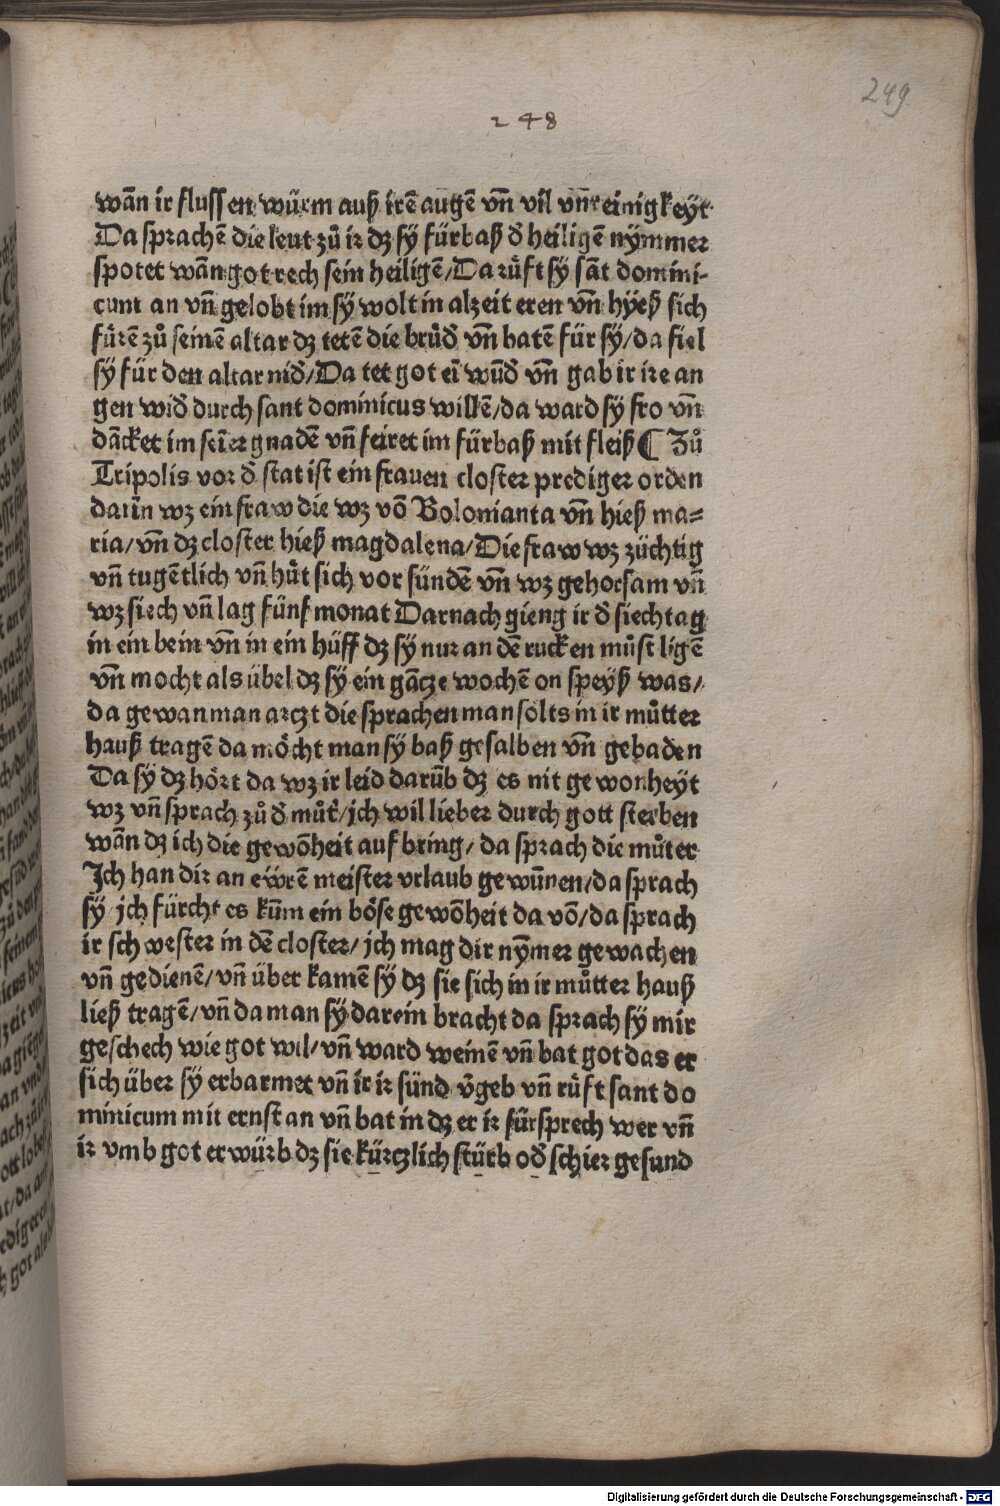 249
248
wān ir flussen würm auß irē augē vn̄ vil vn̄reinigkeyt
Da sprachē die leut zů ir dz sy fürbaß đ heiligē nymmer
spotet wān got rech sein heiligē/Da růft sy sāt domini-
cum an vn̄ gelobt im sy wolt in alzeit eren vn̄ hyeß sich
fůrē zů seinē altar dz tetē die brůđ vn̄ batē für sy/da fiel
sy für den altar niđ/Da tet got eī wūđ vn̄ gab ir ire an
gen wiđ durch sant dominicus willē/da ward sy fro vn̄
dācket im seīer gnadē vn̄ feiret im fürbaß mit fleiß ¶ Zů
Tripolis vor đ stat ist ein frauen closter prediger orden
dariīn wz ein fraw die wz vō Bolonianta vn̄ hieß ma=
ria/vn̄ dz closter hieß magdalena/Die fraw wz züchtig
vn̄ tugētlich vn̄ hůt sich vor sündē vn̄ wz gehorsam vn̄
wz siech vn̄ lag fünf monat Darnach gieng ir đ siechtag
in ein bein vn̄ in ein hüff dz sy nur an dē rucken můst ligē
vn̄ mocht als übel dz sy ein gācze wochē on speyß was/
da gewan man arczt die sprachen man sölts in ir můtter
hauß tragē da möcht man sy baß gesalben vn̄ gebaden
Da sy dz hört da wz ir leid darüb dz es nit gewonheyt
wz vn̄ sprach zů đ můt̄/ich wil lieber durch gott sterben
wān dz ich die gewōheit auf bring/da sprach die můter
Ich han dir an ewrē meister vrlaub gewūnen/da sprach
sy ich fürcht es kūm ein böse gewōheit da vō/da sprach
ir schwester in dē closter/ich mag dir nȳmer gewachen
vn̄ gedienē/vn̄ über kamē sy dz sie sich in ir můtter hauß
ließ tragē/vn̄ da man sy darein bracht da sprach sy mir
geschech wie got wil/vn̄ ward weinē vn̄ bat got das er
sich über sy erbarmet vn̄ ir ir sünd v̄geb vn̄ růft sant do
minicum mit ernst an vn̄ bat in dz er ir fürsprech wer vn̄
ir vmb got erwürb dz sie kürczlich stürb ođ schier gesund
Digitalisierung gefördert durch die Deutsche Forschungsgemeinschaft - DFG